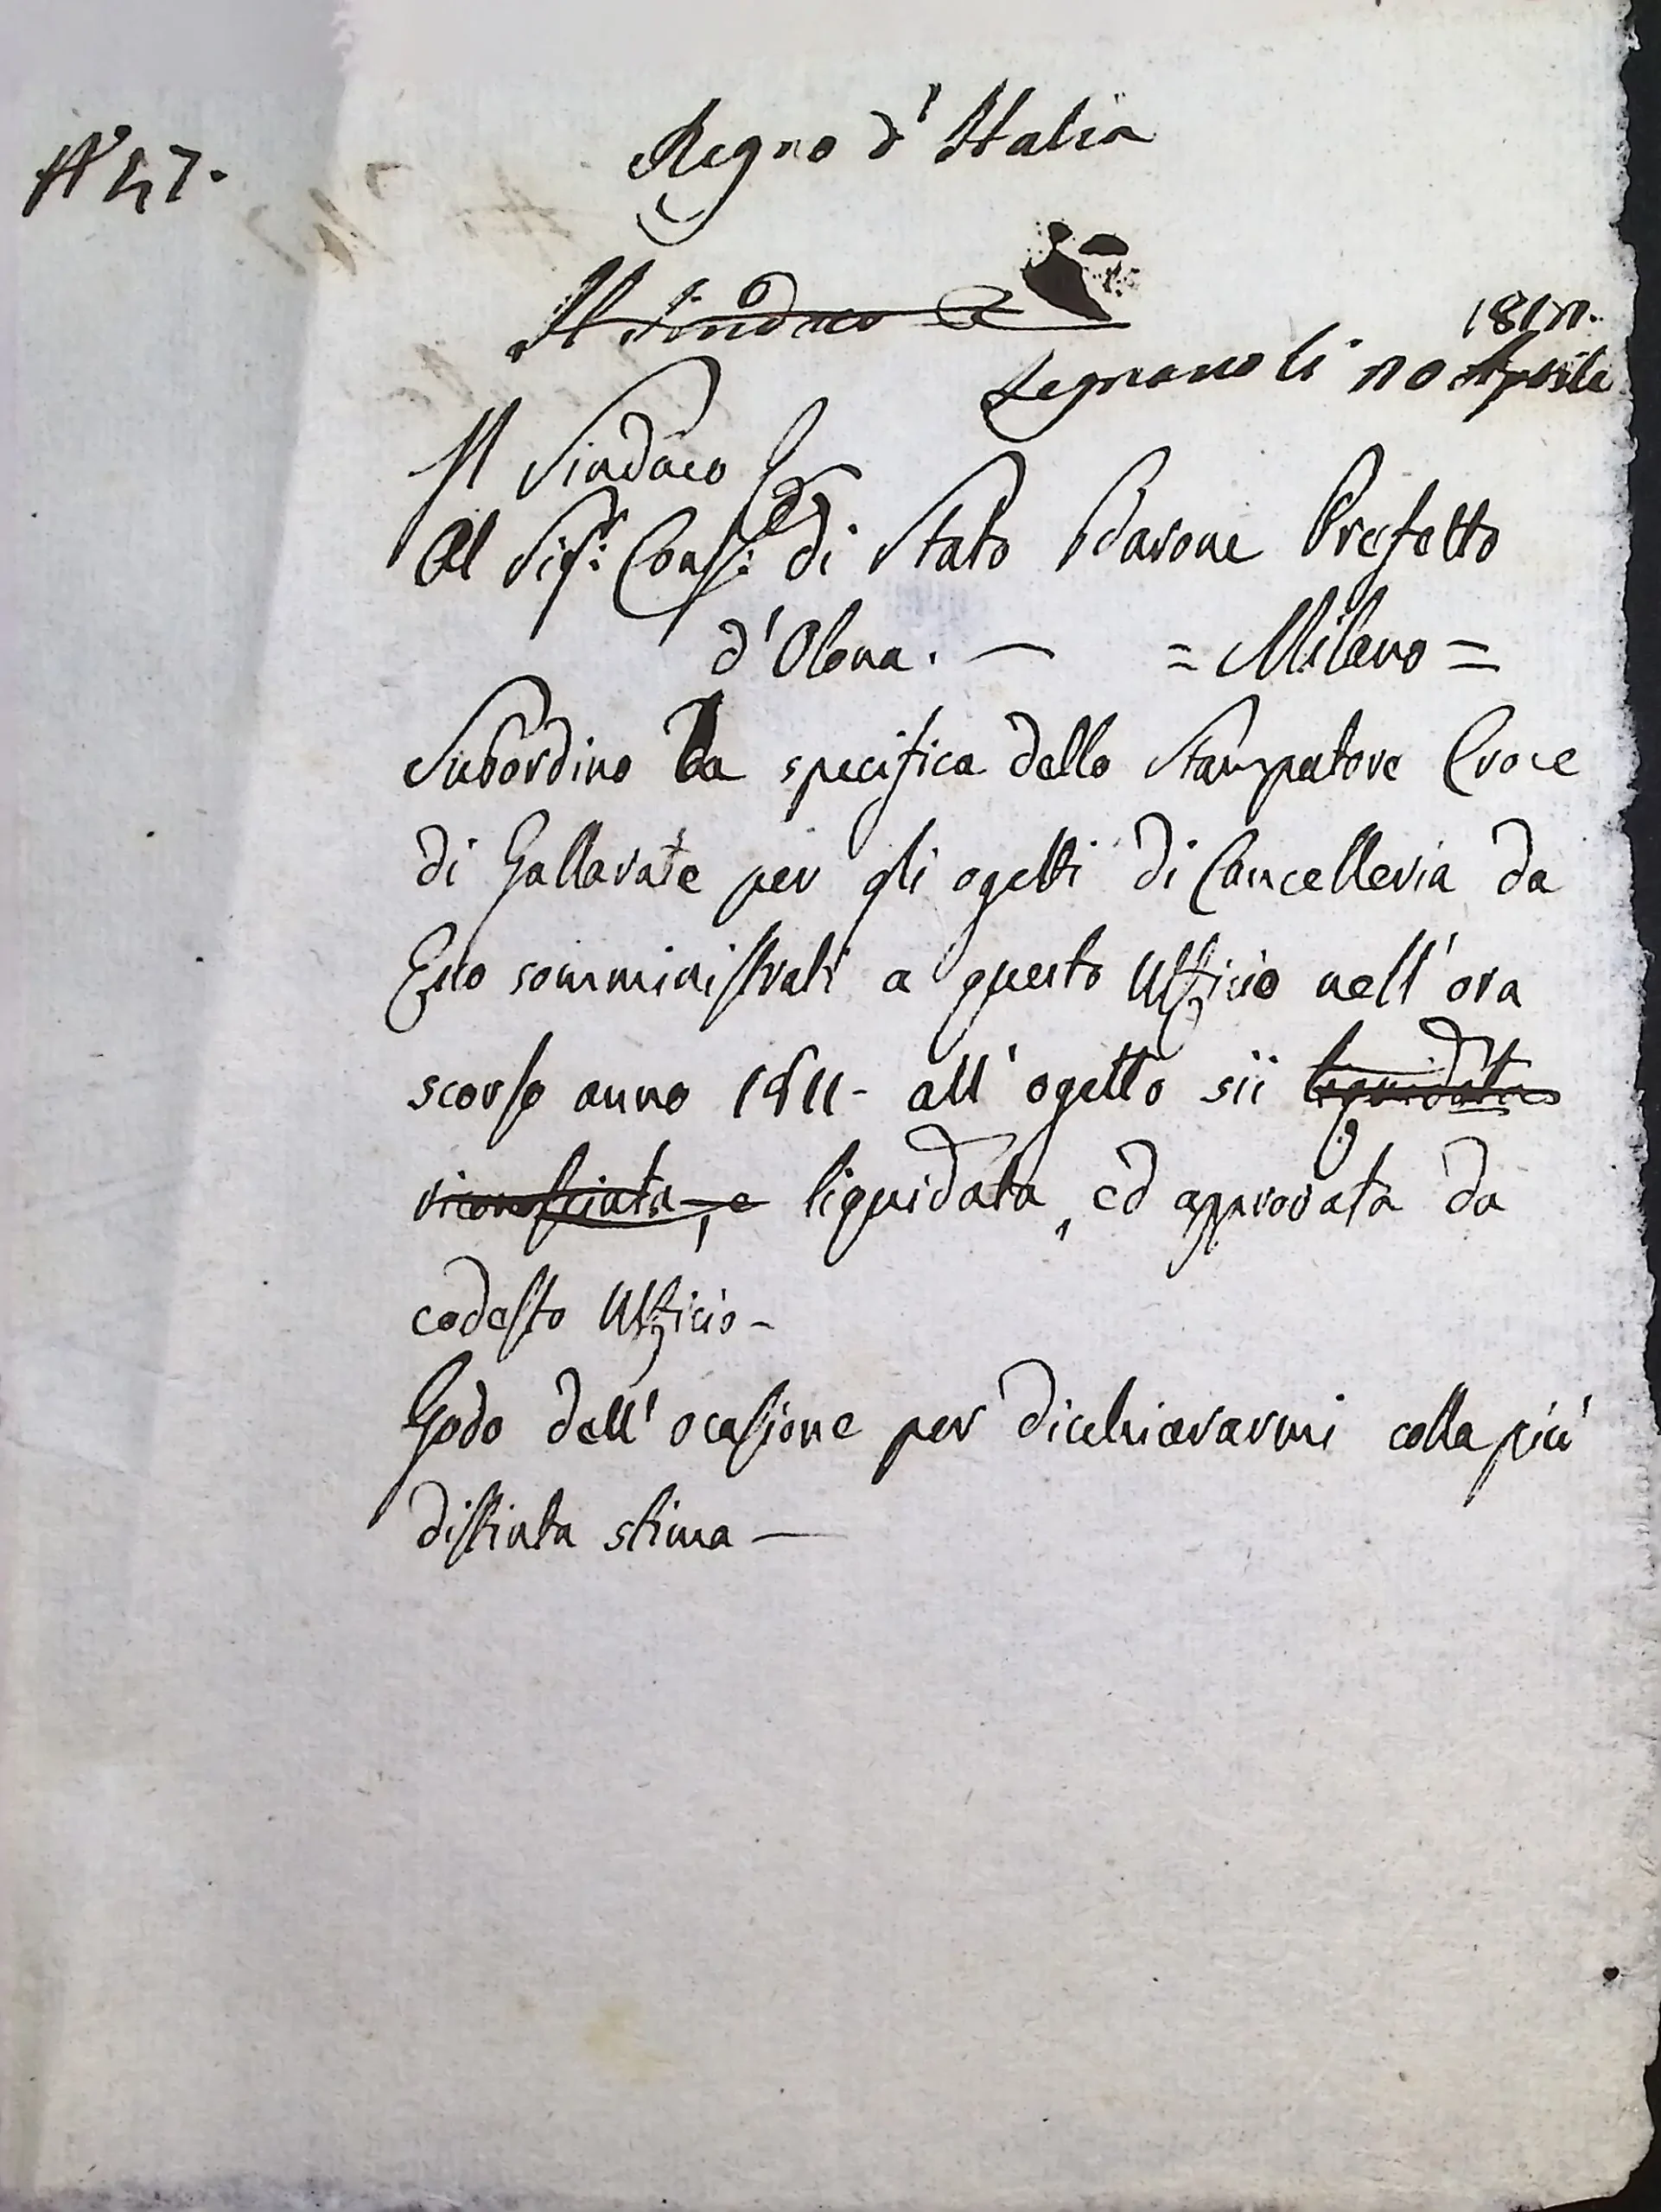 N° 47.
Regno d'Italia
Il Sindaco
1812.
Legnano li 20 Aprile
Il Sindaco
Al Sigr: Consre: di Stato Barone Prefetto
d'Olona. — = Milano =
Subordino la specifica dello Stampatore Croce
di Gallarate per gli ogetti di Cancelleria da
Esso somministrati a questo Uffizio nell'ora
scorso anno 1811 - all'ogetto sii liquidata
riconosciata, e liquidata, ed approvata da
codesto Uffizio -
Godo dell'ocasione per dicchiararmi colla più
distinta stima —